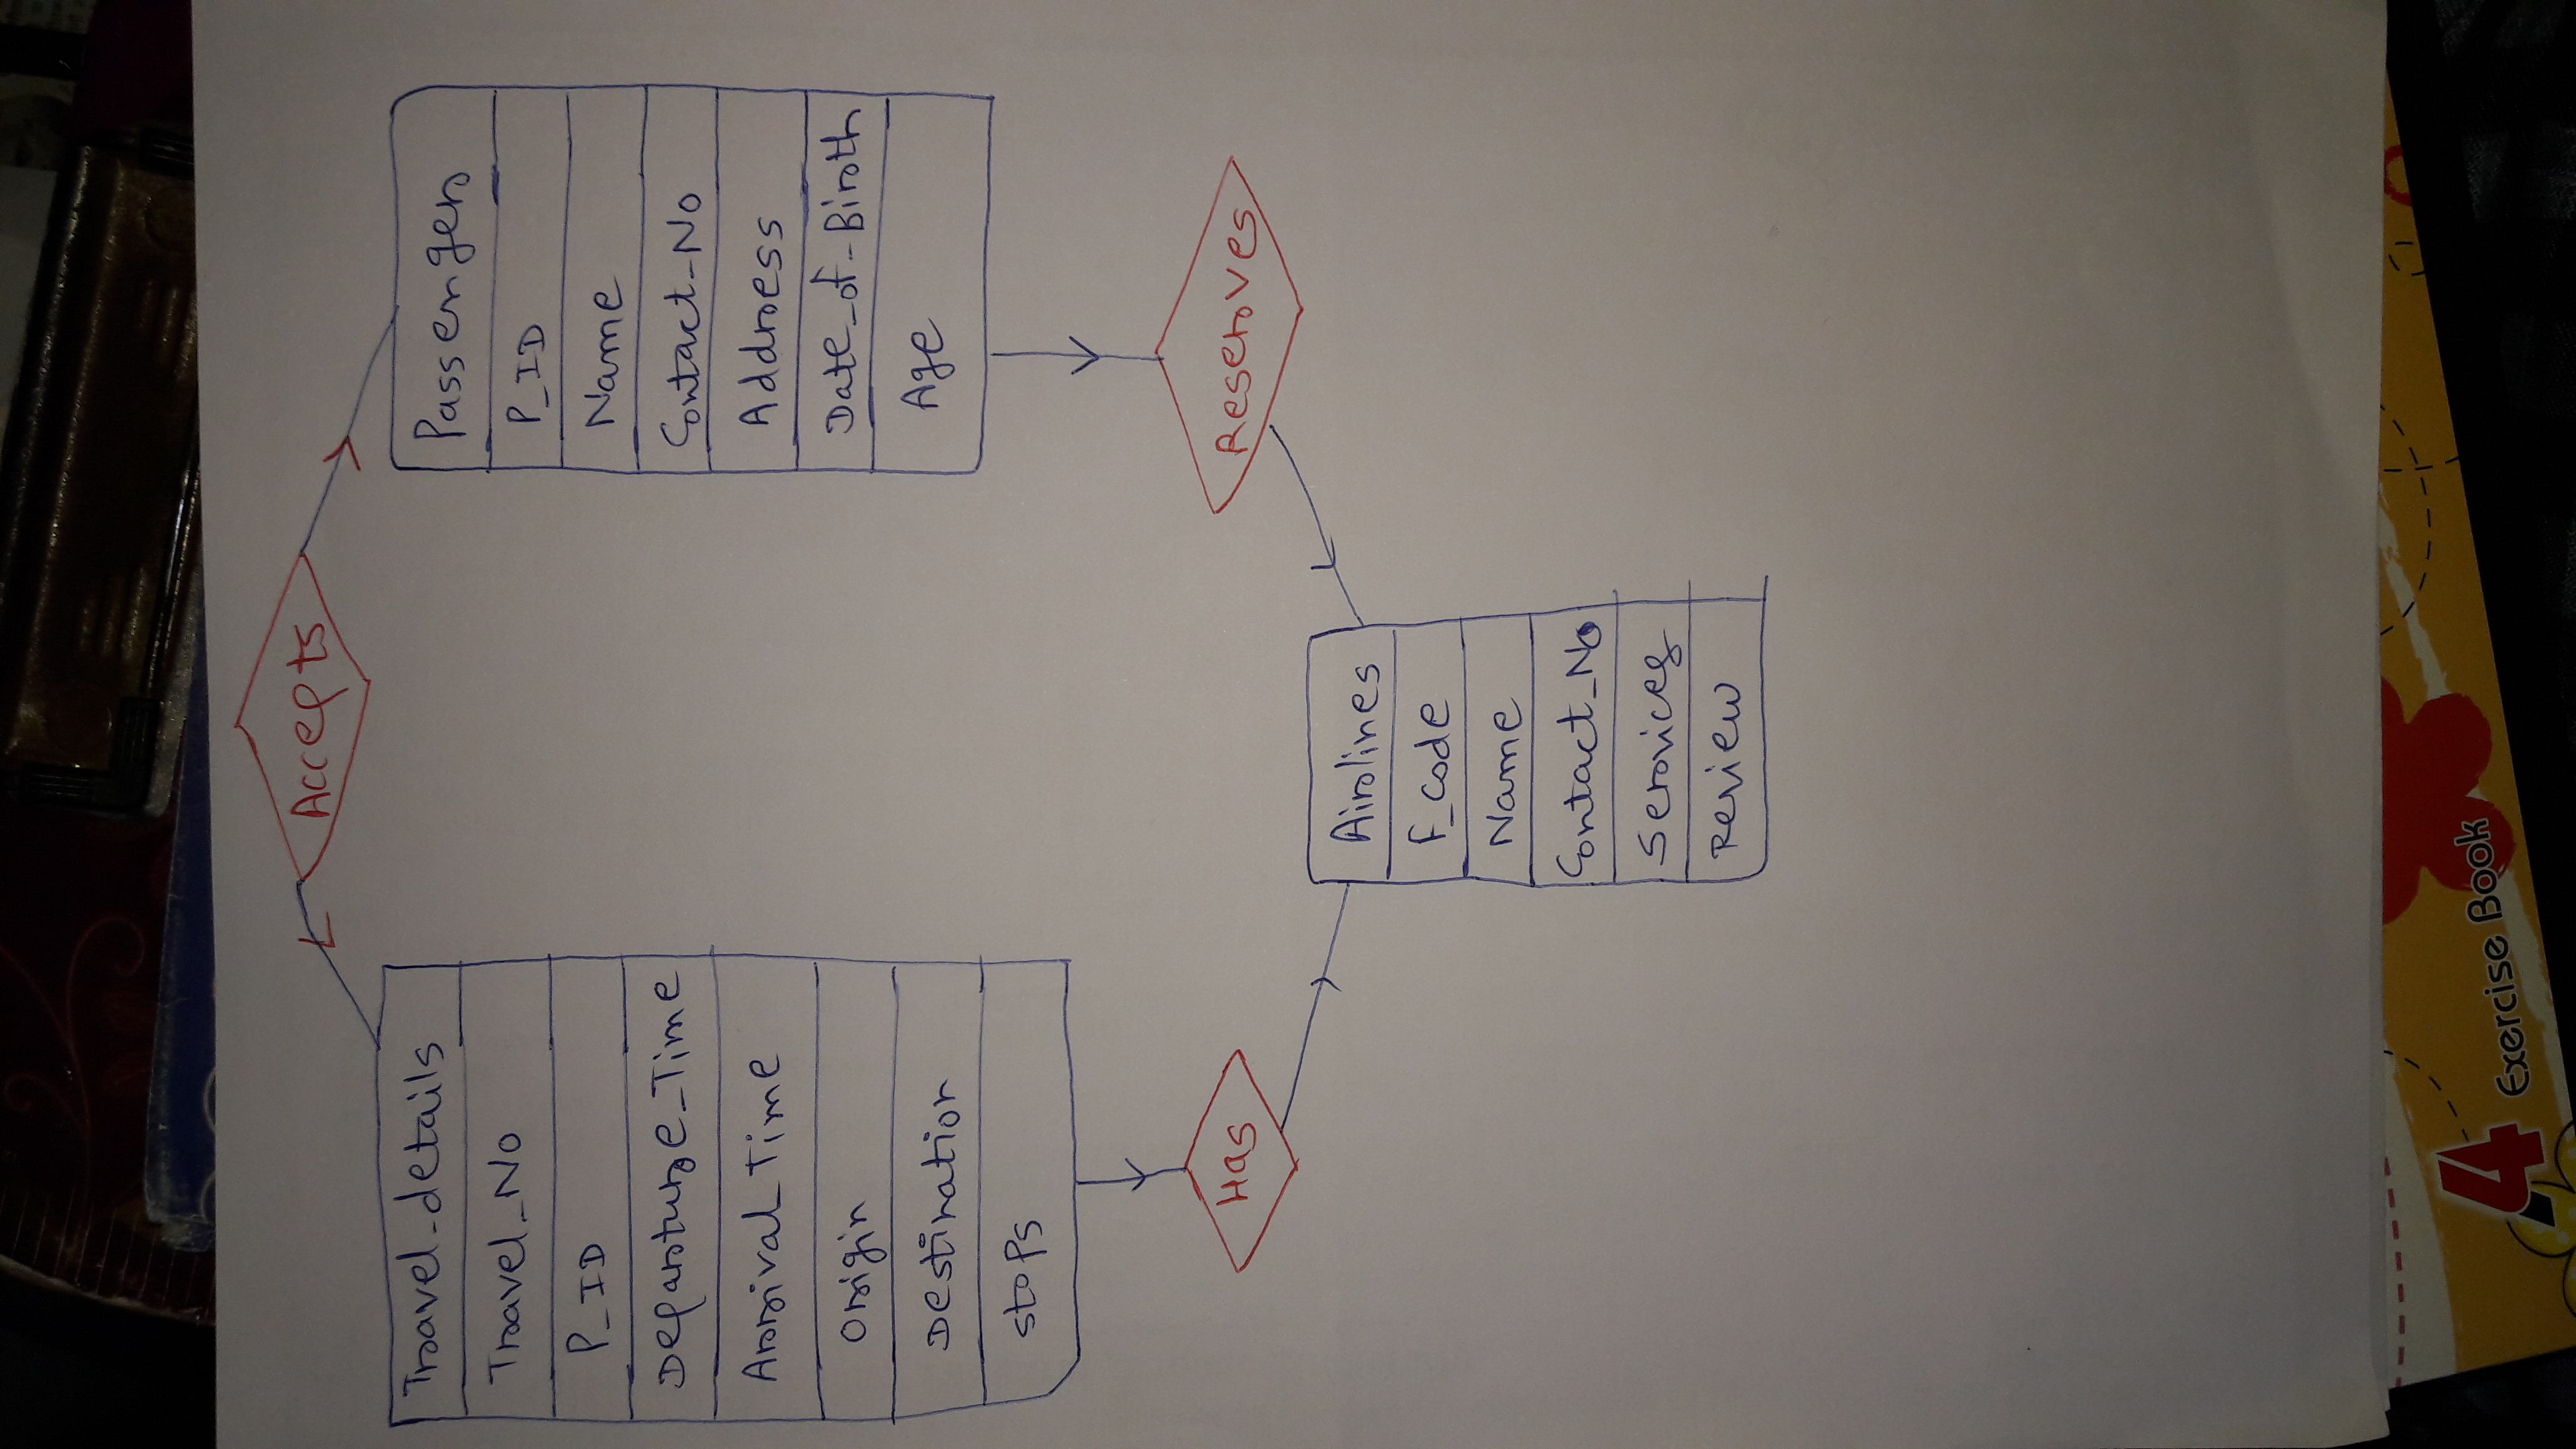 Accepts
Travel_details
Travel_No
P_ID
Departure_Time
Arrival Time
Origin
Destination
stops
Passenger
P_ID
Name
Contact_No
Address
Date_of_Birth
Age
Has
Reserves
Airlines
F_Code
Name
Contact_No
Services
Review
4 Exercise Book